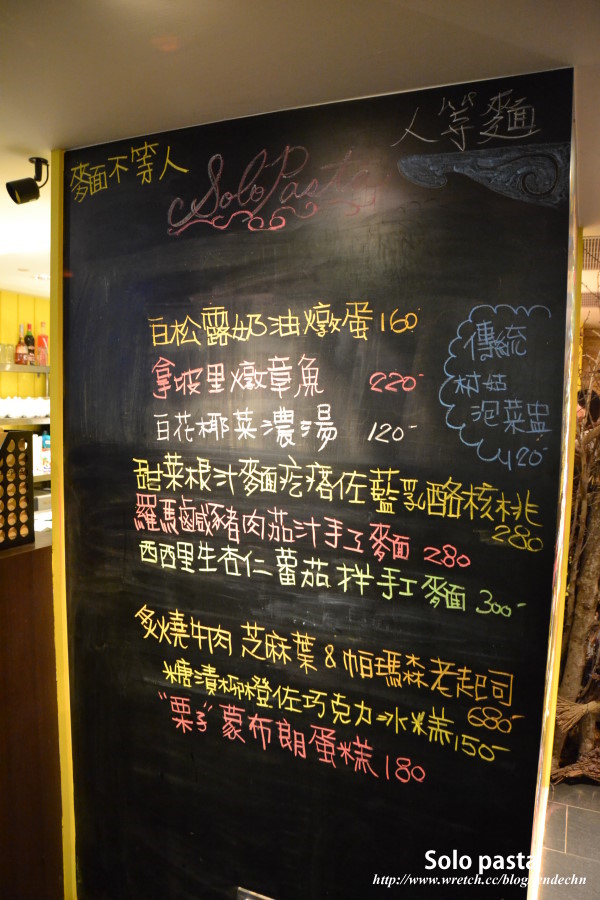 麵不等人
Solo Pasta
人等麵
白松露奶油燉蛋 160
拿坡里燉章魚 220-
百花椰菜濃湯 120-
傳統
村姑
泡菜盅
120-
甜菜根汁麵疙瘩佐藍乳酪核桃
280
羅馬鹹豬肉茄汁手工麵 280
西西里生杏仁蕃茄拌手工麵 300-
炙燒牛肉芝麻葉&帕瑪森老起司
680-
糖漬柳橙佐巧克力冰糕 150-
"栗子"蒙布朗蛋糕 180
Solo pasta